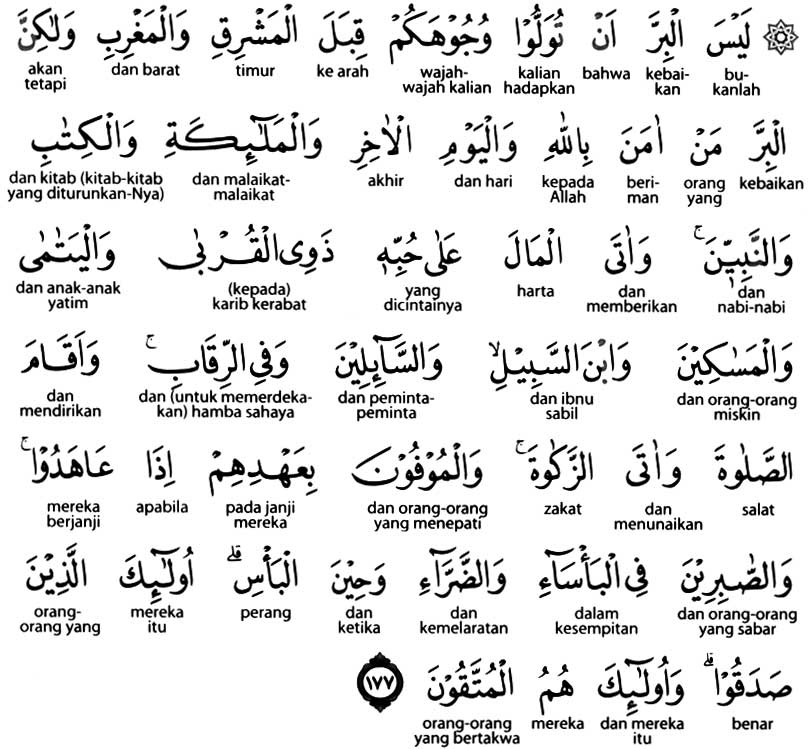 ۞ لَيْسَ الْبِرَّ اَنْ تُوَلُّوْا وُجُوْهَكُمْ قِبَلَ الْمَشْرِقِ وَالْمَغْرِبِ وَلٰكِنَّ
bu-kanlah kebai-kan bahwa kalian hadapkan wajah-wajah kalian ke arah timur dan barat akan tetapi
الْبِرَّ مَنْ اٰمَنَ بِاللّٰهِ وَالْيَوْمِ الْاٰخِرِ وَالْمَلٰۤىِٕكَةِ وَالْكِتٰبِ
kebaikan orang yang beri-man kepada Allah dan hari akhir dan malaikat-malaikat dan kitab (kitab-kitab yang diturunkan-Nya)
وَالنَّبِيّٖنَۚ وَاٰتَى الْمَالَ عَلٰى حُبِّهٖ ذَوِى الْقُرْبٰى وَالْيَتٰمٰى
dan nabi-nabi dan memberikan harta yang dicintainya (kepada) karib kerabat dan anak-anak yatim
وَالْمَسٰكِيْنَ وَابْنَ السَّبِيْلِۙ وَالسَّاۤىِٕلِيْنَ وَفِى الرِّقَابِۚ وَاَقَامَ
dan orang-orang miskin dan ibnu sabil dan peminta-peminta dan (untuk memerdeka-kan) hamba sahaya dan mendirikan
الصَّلٰوةَ وَاٰتَى الزَّكٰوةَۚ وَالْمُوْفُوْنَ بِعَهْدِهِمْ اِذَا عَاهَدُوْاۚ
salat dan menunaikan zakat dan orang-orang yang menepati pada janji mereka apabila mereka berjanji
وَالصّٰبِرِيْنَ فِى الْبَأْسَاۤءِ وَالضَّرَّاۤءِ وَحِيْنَ الْبَأْسِۗ اُولٰۤىِٕكَ الَّذِيْنَ
dan orang-orang yang sabar dalam kesempitan dan kemelaratan dan ketika perang mereka itu orang-orang yang
صَدَقُوْاۗ وَاُولٰۤىِٕكَ هُمُ الْمُتَّقُوْنَ ١٧٧
benar dan mereka itu mereka orang-orang yang bertakwa